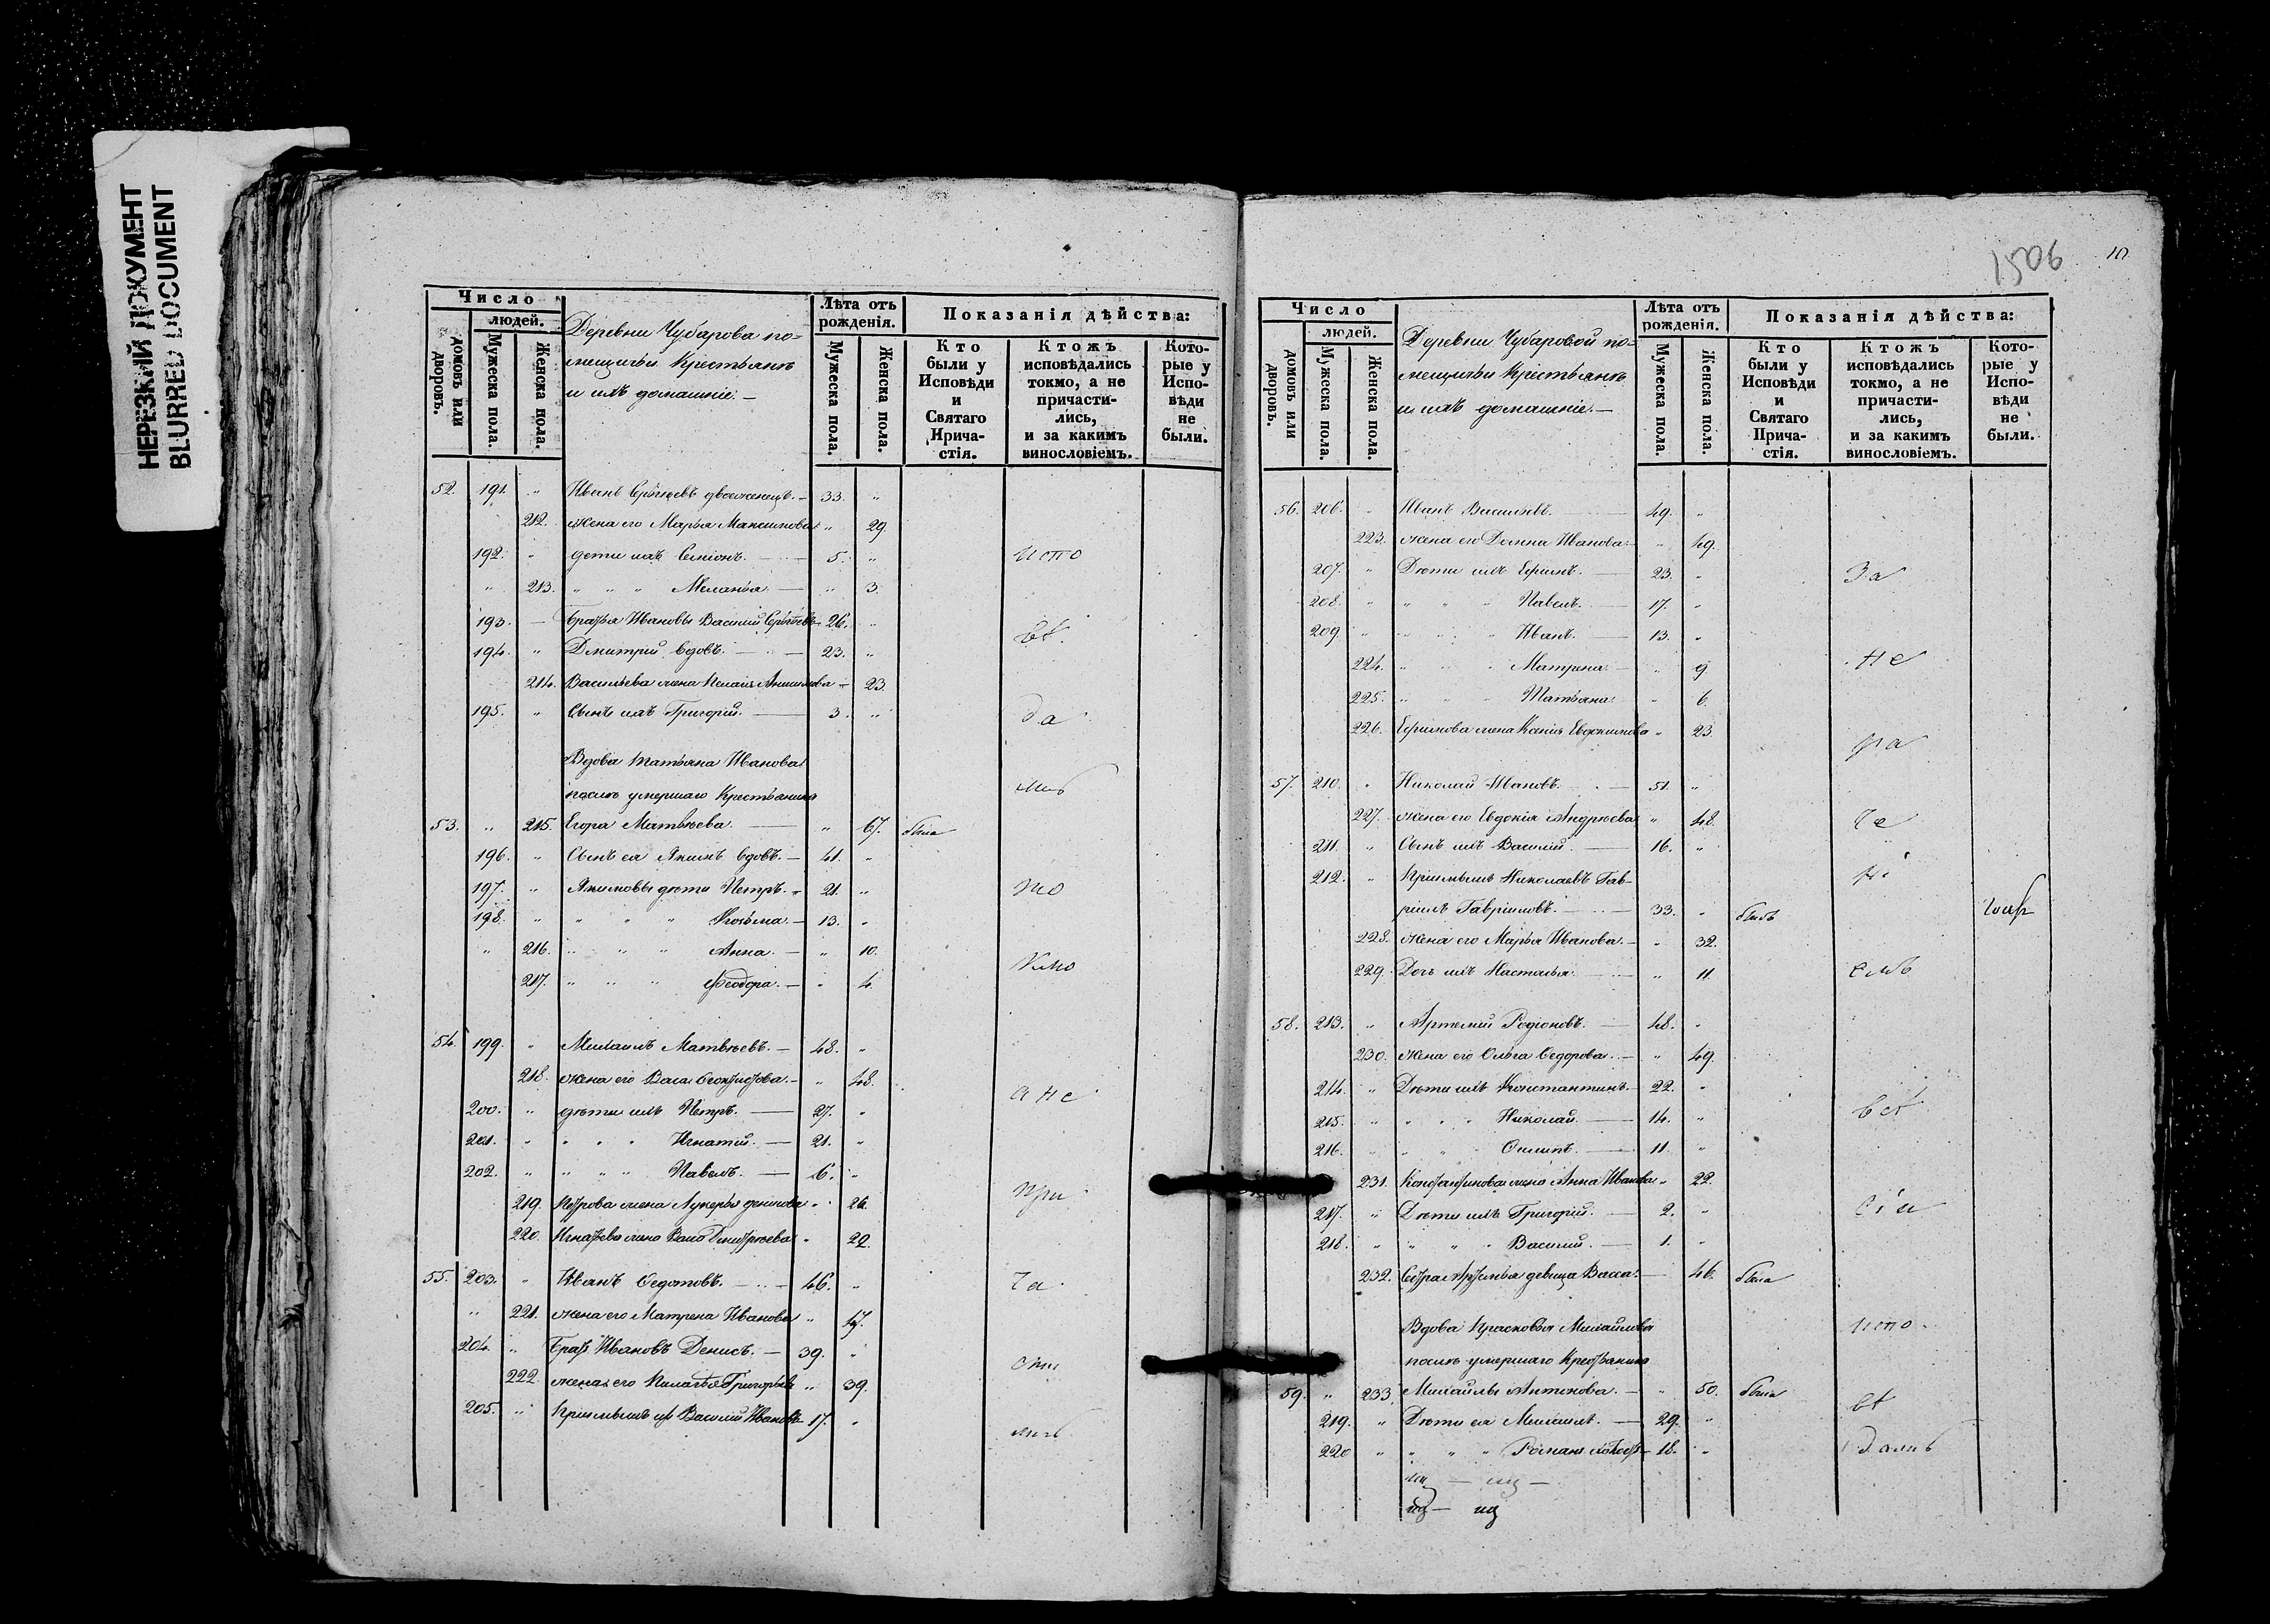 НЕРЕЗКИЙ ДОКУМЕНТ
BLURRED DOCUMENT
Число
людей.
домовъ или дворовъ.
Мужеска пола.
Женска пола.
Деревни Чубарова по-
мещичьи Крестьяне
и ихъ домашніе. —
Лѣта отъ рожденія.
Мужеска пола.
Женска пола.
Показанія дѣйства:
Кто были у Исповѣди и Святаго Прича-стія.
Ктожъ исповѣдались токмо, а не причасти-лись, и за какимъ винословіемъ.
Кото-рые у Испо-вѣди не были.
52. 191. " Иванъ Сергѣевъ двоеженецъ. — 33. "
212. жена его Марья Максимова " 29.
192. " дети ихъ Семіонъ. — 5. " испо
" 213. " " " Меланья. — " 3.
193. — Братья Ивановы Василій Сергѣевъ 26. " вѣ
194. " Дмитрій вдовъ. — 23. "
214. Васильева жена Пелагія 23.
195. " Сынъ ихъ Григорій. — 3. " да
Вдова Татьяна Иванова
послѣ умершаго Крестьянина лись
53. " 215. Егора Матвѣева. — " 67. была
196. " Сынъ ея Якимъ вдовъ. — 41. "
197. " Якимовы дѣти Петръ. — 21. " то
198. " " " " Козьма. — 13. "
" 216. " " " Анна. — " 10.
217. " " " Феодора. — " 4. кмо
54. 199. " Михаилъ Матвѣевъ. — 48. "
218. жена его Васса " 48. а не
200. " дѣти ихъ Петръ. — 27. "
201. " " " " Игнатій. — 21. "
202. " " " " Павелъ. — 6. "
219. Петрова жена Лукерья " 26. при
220. Игнатьева жена Дмитріева " 22.
55. 203. " Иванъ Федотовъ. — 46. " ча
" 221. жена его Матрена Иванова " 47.
204. " Братъ Ивановъ Денисъ. — 39. "
222. жена его Пелагѣя Григорьева " 39. сти
205. " Пріемышъ ихъ Василій Ивановъ 17. " лись
1506
Число
людей.
домовъ или дворовъ.
Мужеска пола.
Женска пола.
Деревни Чубаровой по-
мещичьи Крестьяне
и ихъ домашніе. —
Лѣта отъ рожденія.
Мужеска пола.
Женска пола.
Показанія дѣйства:
Кто были у Исповѣди и Святаго Прича-стія.
Ктожъ исповѣдались токмо, а не причасти-лись, и за какимъ винословіемъ.
Кото-рые у Испо-вѣди не были.
56. 206. " Иванъ Васильевъ. — 49. "
223. жена его Иванова. — " 49.
207. " Дѣти ихъ Ефимъ. — 23. " За
208. " " " " Павелъ. — 17. "
209. " " " " Иванъ. — 13. "
224. " " " Матрена. — " 9. не
225. " " " Татьяна. " 6.
226. Ефимова жена Ксенія Евдокимова " 23. ра
57. 210. " Николай Ивановъ. — 51. "
227. жена его Евдокія Андрѣева " 48. че
211. " Сынъ ихъ Василій. — 16. "
212. " Пріемышъ Николаевъ Гав- ні
ріилъ Гавріиловъ. — 33. " былъ
228. жена его Марья Иванова. — " 32.
229. Дочь ихъ Настасья. — " 11. емъ
58. 213. " Артемій Родіоновъ. — 48. "
230. жена его Ольга Федорова. — " 49.
214. " Дѣти ихъ Константинъ. — 22. "
215. " " " " Николай. — 14. " всѣ
216. " " " " 11. "
231. Константинова жена Анна Иванова " 22.
217. " Дѣти ихъ Григорій. — 2. " сіи
218. " " " " Василій. — 1. "
232. Сестра Артемья девица Васса. — 46. была
Вдова Прасковья Михайлова испо-
послѣ умершаго Крестьянина
59. " 233. Михайлы Антонова. — " 50. была вѣ
219. " Дѣти ея Михаилъ. — 29. "
220 " " " " Романъ 18. " дались